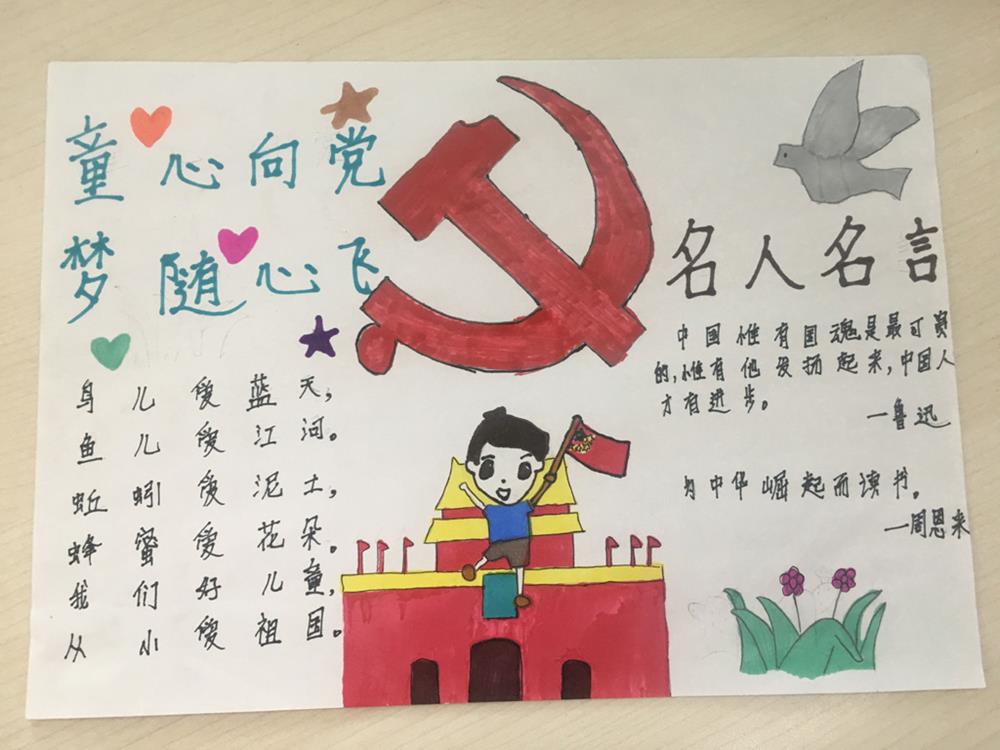 童心向党
梦随心飞
鸟儿爱蓝天，
鱼儿爱江河。
蚯蚓爱泥土，
蜂蜜爱花朵。
我们好儿童，
从小爱祖国。
名人名言
中国惟有国魂是最可贵
的，惟有他发扬起来，中国人
才有进步。
—鲁迅
为中华崛起而读书。
—周恩来